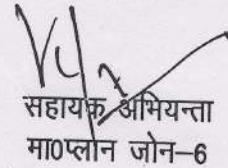 सहायक अभियन्ता
मा0प्लान जोन-6